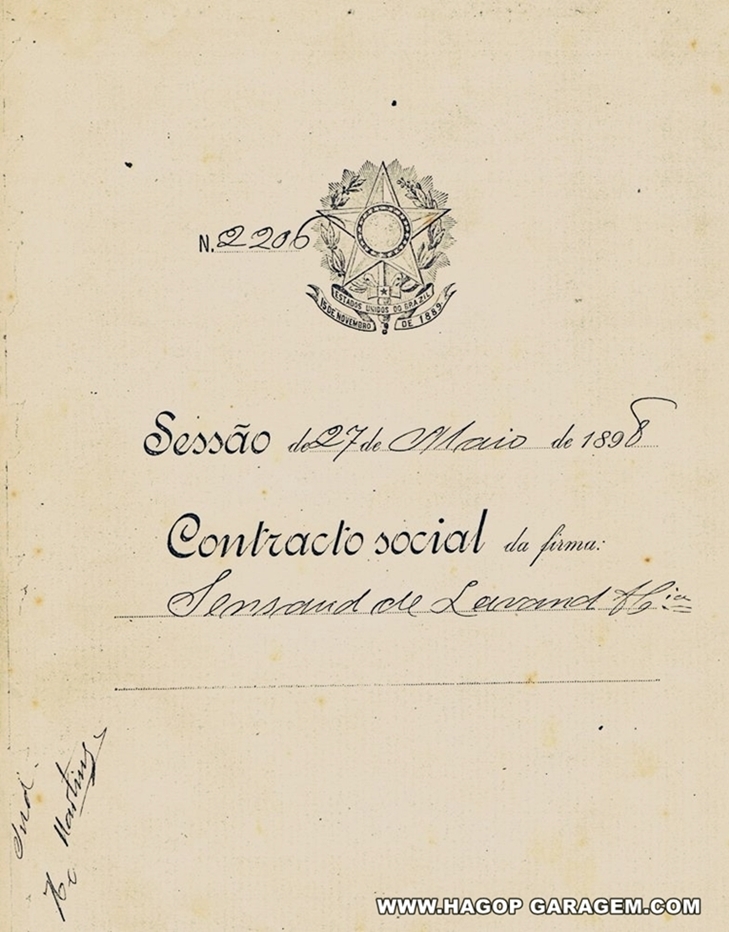 N. 2206
ESTADOS UNIDOS DO BRAZIL
15 DE NOVEMBRO DE 1889
Sessão de 27 de Maio de 1898
Contracto social da firma:
Sensaud de Lavaud & Cia
Martins
WWW.HAGOP GARAGEM.COM